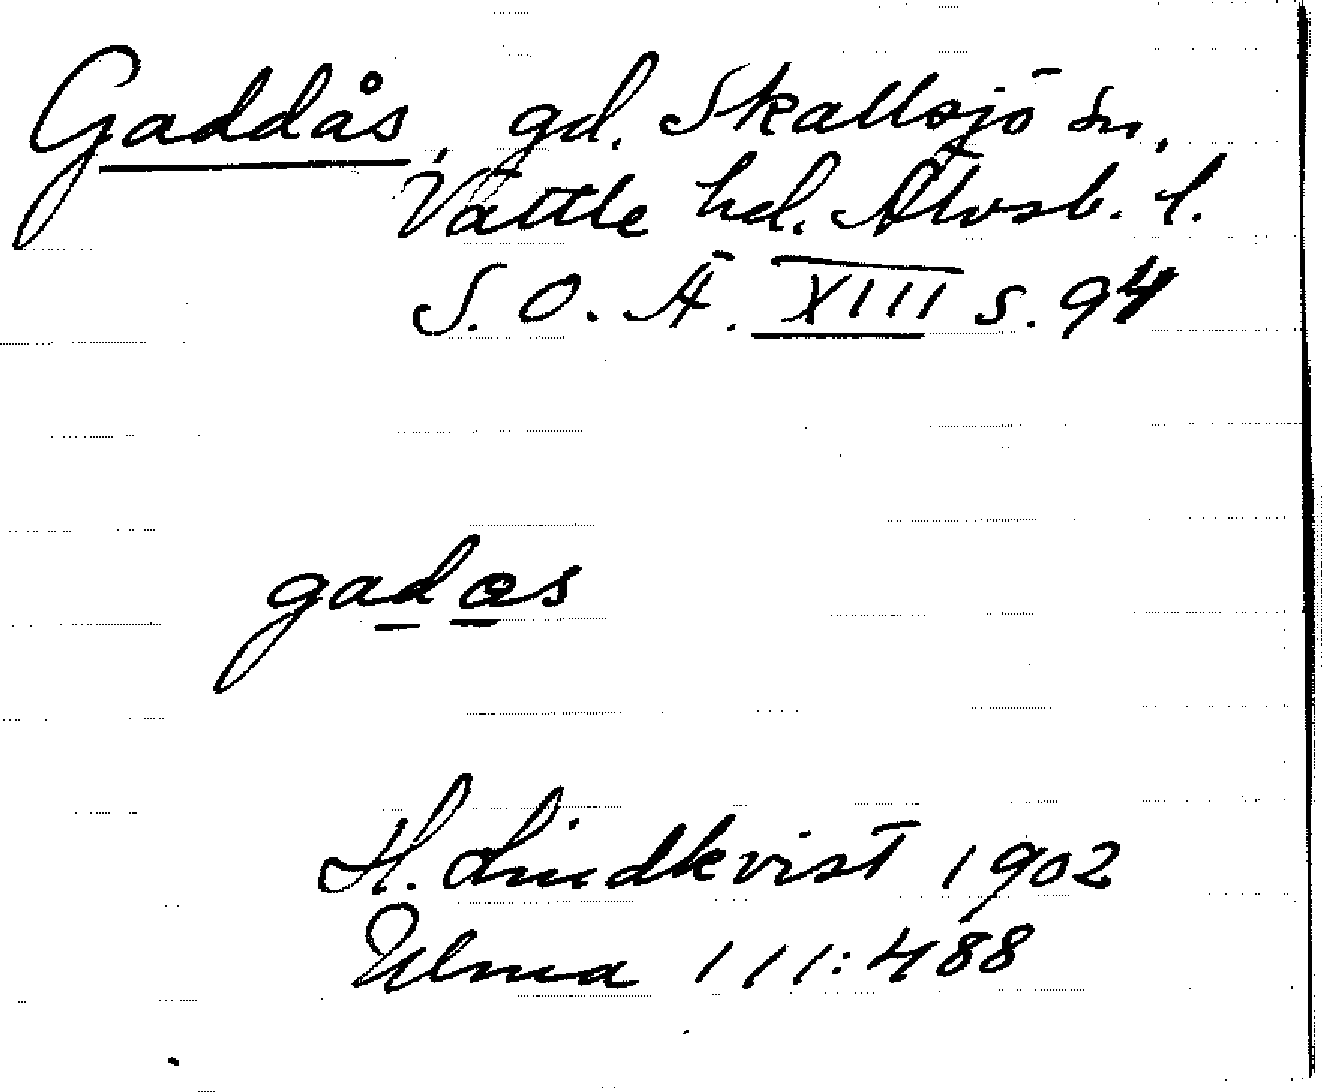 Gaddås, gd. Skallsjö sn,
Vättle hd. Älvsb. l.
S. O. Ä. XIII s. 94
gadas
H. Lindkvist 1902
Ulma 111:488